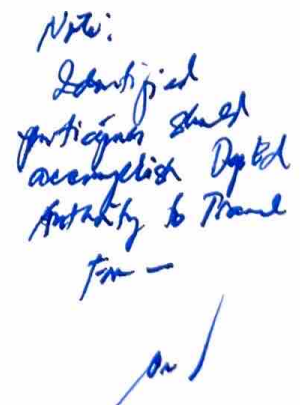 Note:
Identified
participants should
accomplish DepEd
Authority to Travel
Form —